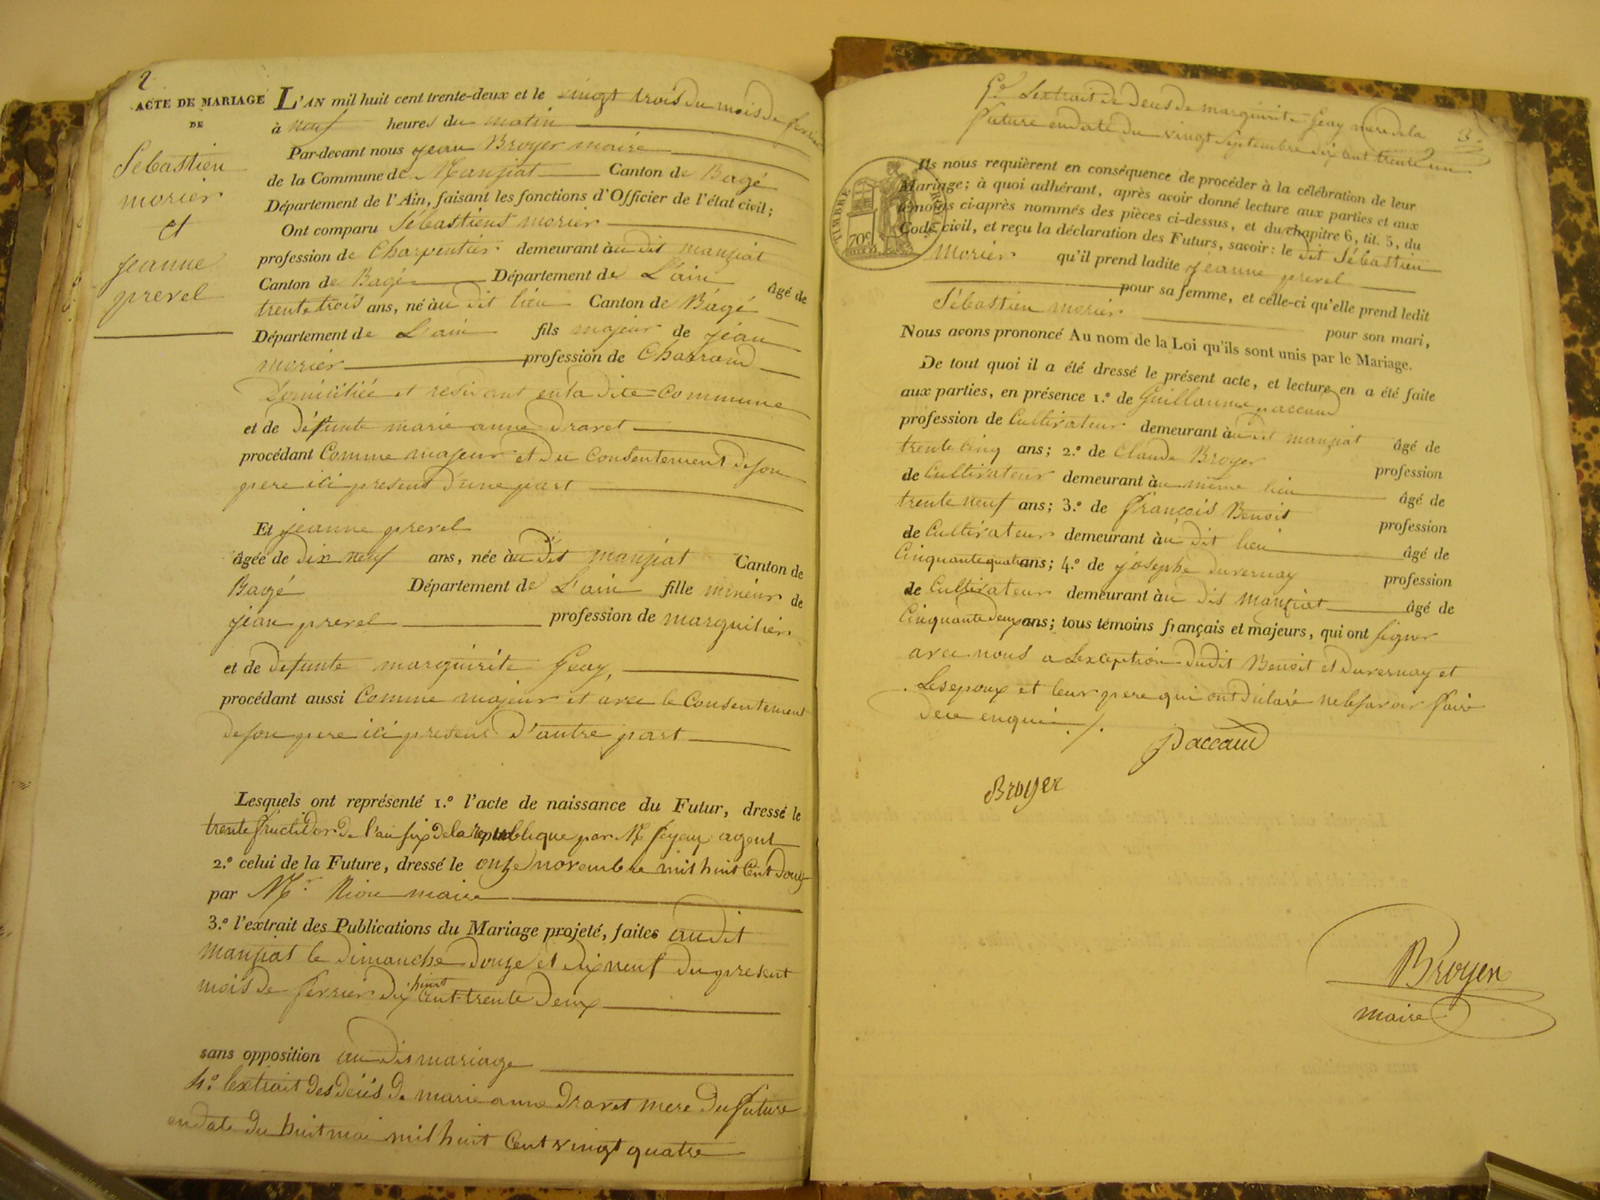 2
ACTE DE MARIAGE
DE
Sébastien
morier
et
jeanne
prevel
L'AN mil huit cent trente-deux et le vingt trois du mois de fevrier
à neuf heures du matin
Par-devant nous jean Broyer maire
de la Commune de Manziat Canton de Bagé
Département de l'Ain, faisant les fonctions d'Officier de l'état civil;
Ont comparu Sébastient morier
profession de Charpentier demeurant àu dit manziat
Canton de Bagé Département de L'ain âgé de
trente trois ans, né àu dit lieu Canton de Bàgé
Département de L'ain fils majeur de jean
morier profession de Charrand
Domiciliée et residant en la dite Commune
et de défunte marie anne dravet
procédant Comme majeur et du Consentement de son
pere ici present d'une part
Et jeanne prevel
âgée de dix neuf ans, née àu dit manziat Canton de
Bagé Département de L'ain fille mineur de
jean prevel profession de marguilier
et de defunte marguirite Geay,
procédant aussi Comme majeur et avec le Consentement
de son pere ici present D'autre part
Lesquels ont représenté 1.º l'acte de naissance du Futur, dressé le
trente fructidor de l'an six de la republique par Mr feyeux agent
2.º celui de la Future, dressé le onze novembre mil huit Cent douze
par Mr. Nion maire
3.º l'extrait des Publications du Mariage projeté, faites audit
manziat le dimanche douze et dix neuf du present
mois de fevrier dix huit Cent trente deux
sans opposition au dit mariage
4.º l'extrait des décés de marie anne dravet mere du future
en date du huit mai mil huit Cent vingt quatre
5.º L'extrait de deces de marguirite Geay mere de la
future en date du vingt Septembre dix huit trente un
3.
TIMBRE ROYAL
70c
Ils nous requièrent en conséquence de procéder à la célébration de leur
Mariage; à quoi adhérant, après avoir donné lecture aux parties et aux
témoins ci-après nommés des pièces ci-dessus, et du chapitre 6, tit. 5, du
Code civil, et reçu la déclaration des Futurs, savoir: le dit Sébastien
Morier qu'il prend ladite jeanne prevel
pour sa femme, et celle-ci qu'elle prend ledit
Sébastien morier pour son mari,
Nous avons prononcé Au nom de la Loi qu'ils sont unis par le Mariage.
De tout quoi il a été dressé le présent acte, et lecture en a été faite
aux parties, en présence 1.º de Guillaume paccaud
profession de Cultivateur demeurant àu dit manziat âgé de
trente cinq ans; 2.º de Claude Broyer profession
de Cultivateur demeurant àu même lieu âgé de
trente neuf ans; 3.º de françois Benoit profession
de Cultivateur demeurant àu dit lieu âgé de
Cinquante quatre ans; 4.º de josephe duvernay profession
de Cultivateur demeurant àu dit manziat âgé de
Cinquante deux ans; tous témoins français et majeurs, qui ont signer
avec nous a L'exception dudit Benoit et duvernay et
Les epoux et leur pere qui ont declaré ne le savoir faire
de ce enquis ./.
Paccaud
Broyer
Broyer
maire